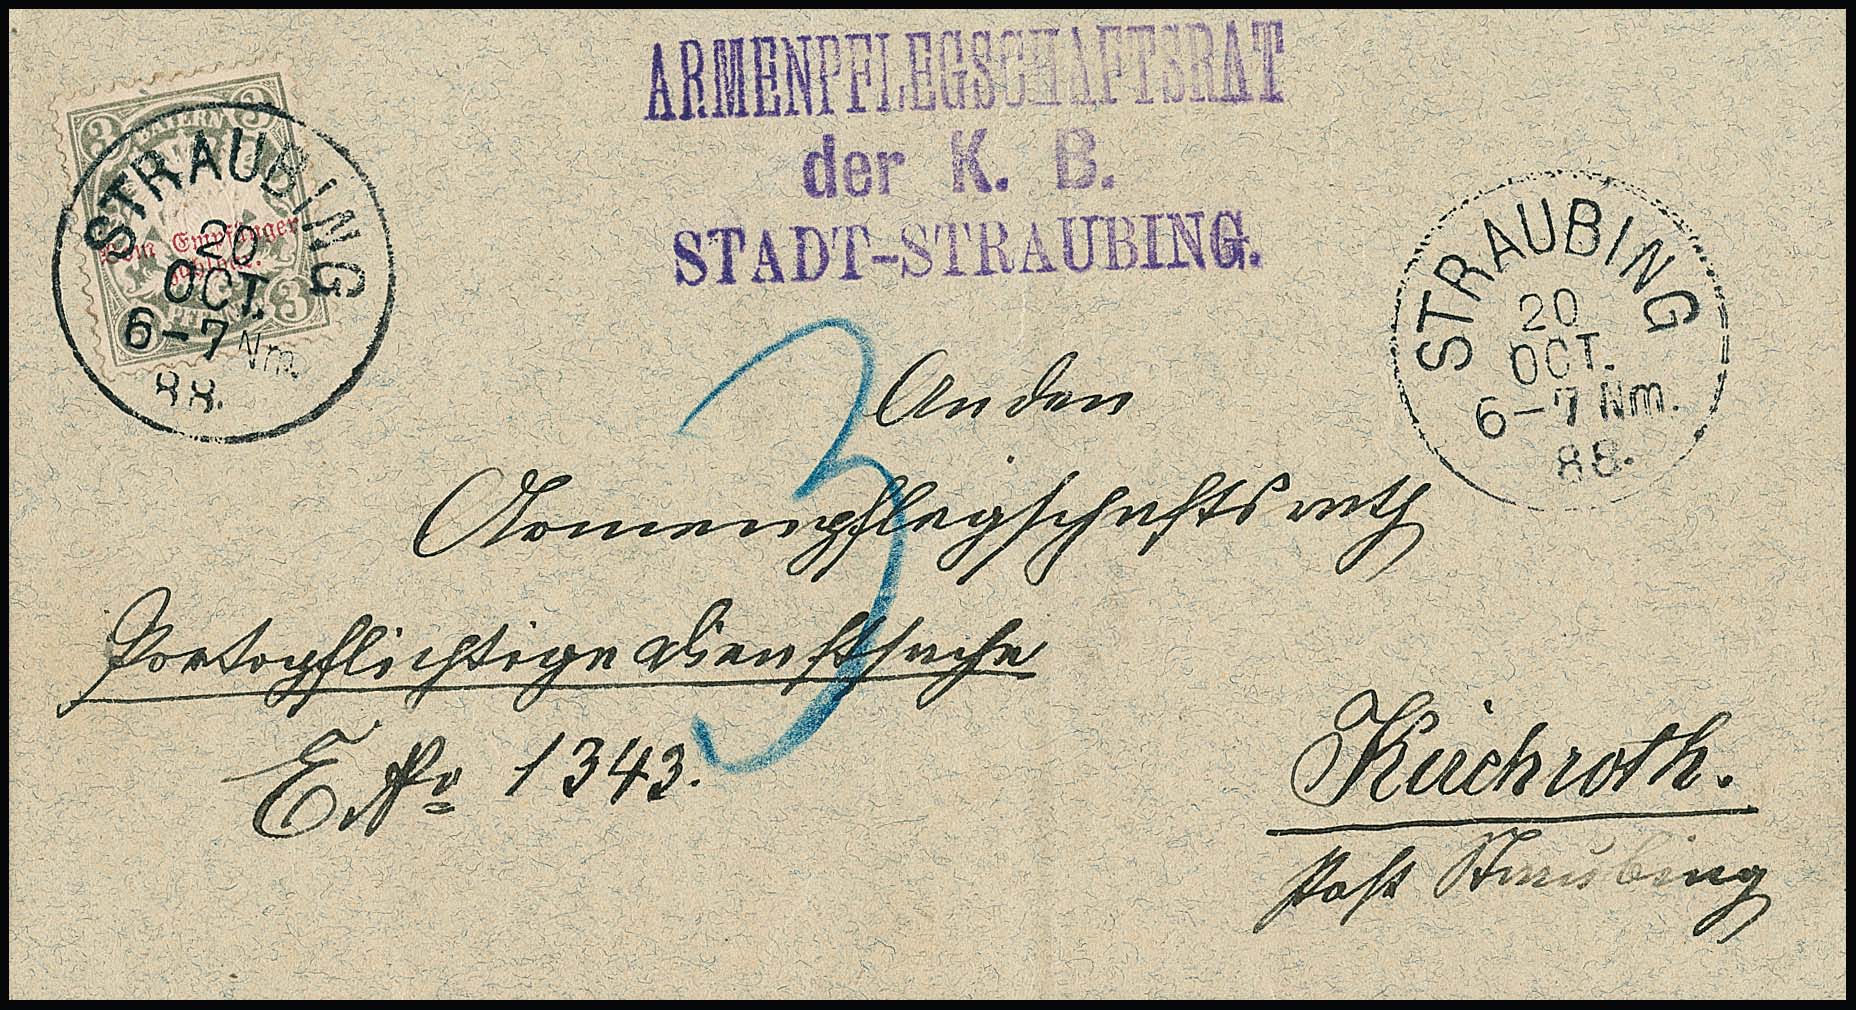 ARMENPFLEGSCHAFTSRAT
der K. B.
STADT-STRAUBING.
3 BAYERN 3
Vom Empfänger
zahlbar.
PFENNIG 3
STRAUBING
20
OCT.
6-7 Nm.
88.
STRAUBING
20
OCT.
6-7 Nm.
88.
3
An den
Armenpflegschaftsrath
Portopflichtige Dienstsache
E. No 1343.
Kirchroth.
Post Straubing